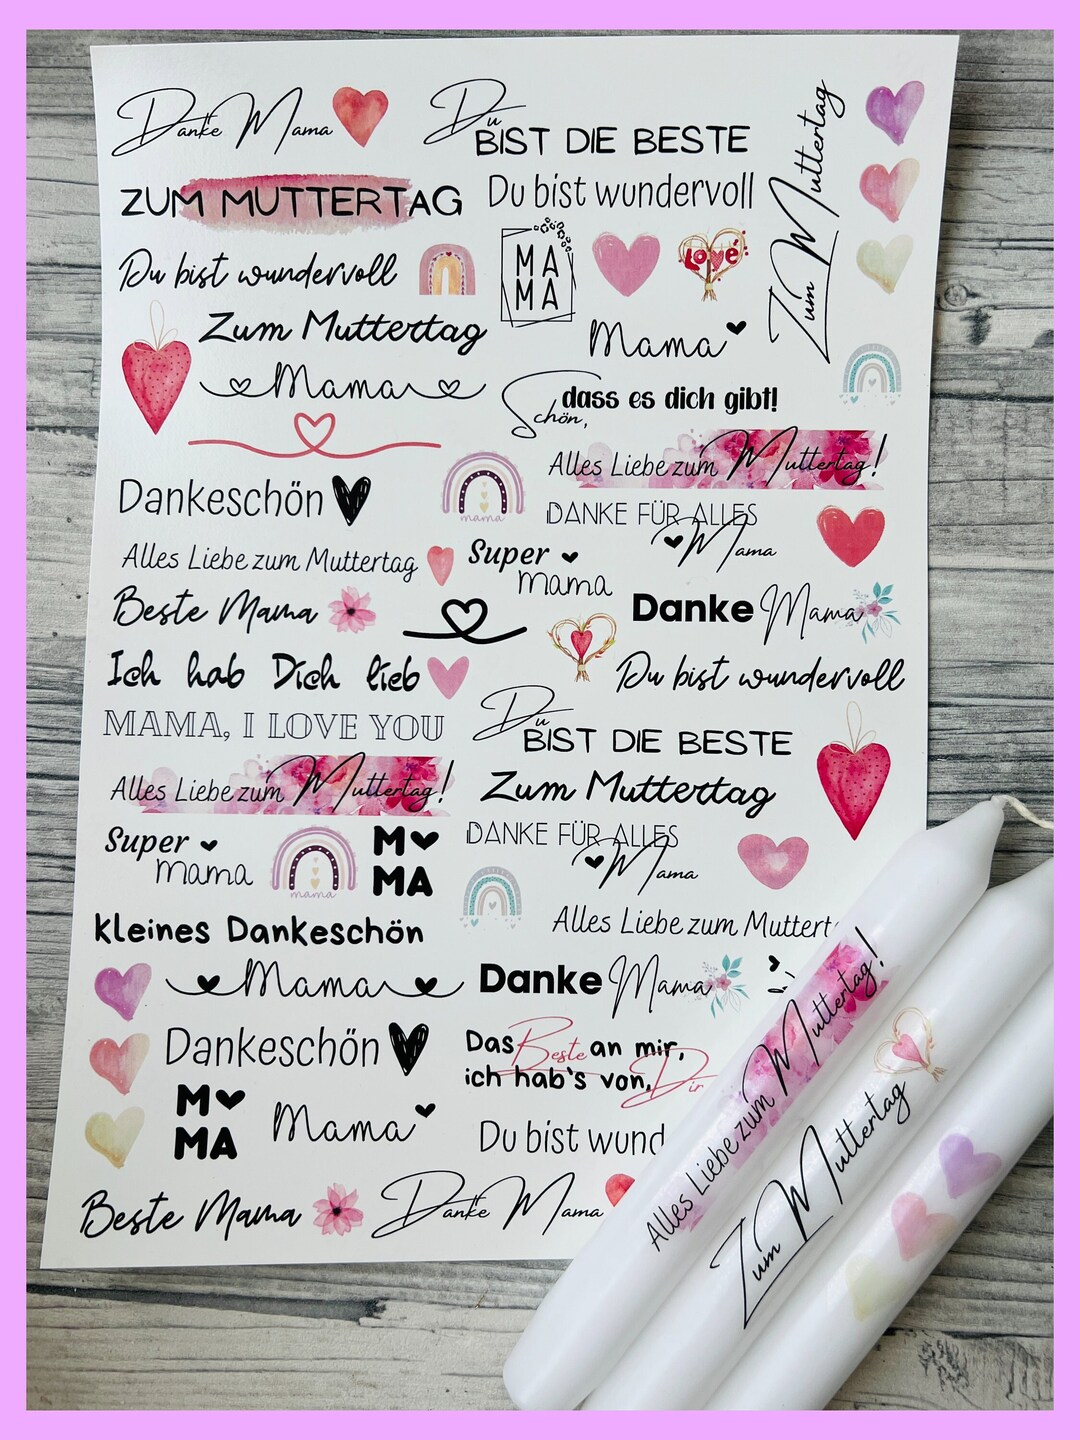 Danke Mama
Du
BIST DIE BESTE
Zum Muttertag
ZUM MUTTERTAG
Du bist wundervoll
Du bist wundervoll
MA
MA
LOVE
Zum Muttertag
Mama
Mama
Schön,
dass es dich gibt!
Alles Liebe zum Muttertag!
Dankeschön
mama
DANKE FÜR ALLES
Mama
Alles Liebe zum Muttertag
Super
mama
Beste Mama
Danke Mama
Ich hab Dich lieb
Du bist wundervoll
MAMA, I LOVE YOU
Du
BIST DIE BESTE
Alles Liebe zum Muttertag!
Zum Muttertag
Super
mama
mama
M
MA
DANKE FÜR ALLES
Mama
Kleines Dankeschön
Alles Liebe zum Muttert
Mama
Danke Mama
Dankeschön
Das Beste an mir,
ich hab's von Dir
M
MA
Mama
Du bist wund
Beste Mama
Danke Mama
Alles Liebe zum Muttertag!
Zum Muttertag